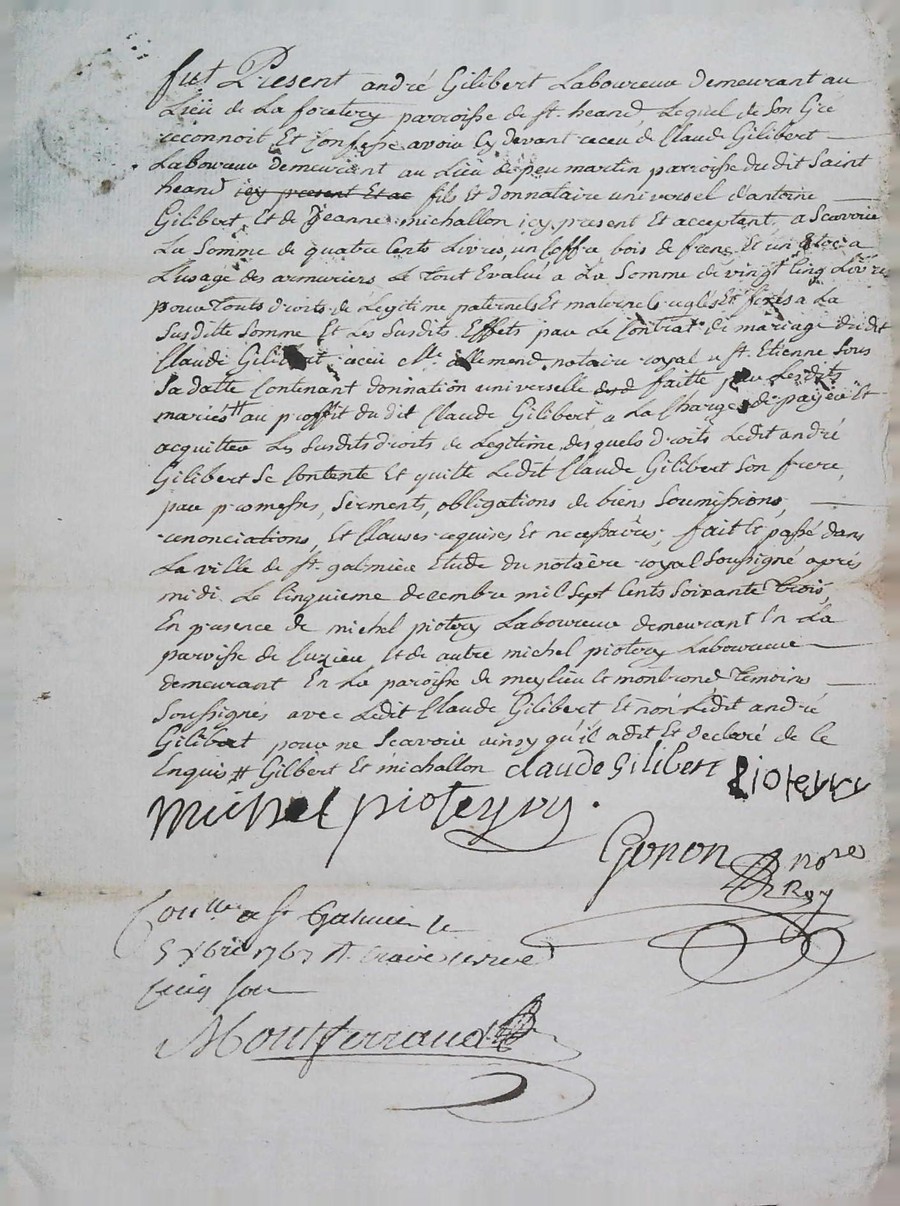 fut Present andré Gilibert Laboureur demeurant au
Lieü de La foretery parroisse de st. heand, Lequel de Son Gré
reconnoit Et Confesse avoir Cy devant receu de Claude Gilibert
Laboureur demeurant au Lieu de peu martin parroisse du dit Saint
heand icy present Et ac fils Et donnataire universel d'antoine
Gilibert, Et de Jeanne michallon icy present Et acceptant, a Scavoir
La Somme de quatre Cents Livres, un Coffre bois de frene Et un Etoc a
L'usage des armuriers Le tout Evalué a La Somme de vingt Cinq Livres
pour touts droits de Legitime paternels Et maternels reglés Et fixés a La
Susditte Somme Et Les Susdits Effets par Le Contrat de mariage du dit
Claude Gilibert receu Me allemend notaire royal a st. Etienne Sous
Sa datte Contenant donnation universelle faitte par Lesdits
mariés # au proffit du dit Claude Gilibert, a La Charge de payer Et
acquitter Les Susdits droits de Legitime, desquels droits Ledit andré
Gilibert Se Contente Et quitte Ledit Claude Gilibert Son frere,
par promesses, Serments, obligations de biens Soumissions,
renonciations, Et Clauses requises Et necessaires; fait Et passé dans
La ville de st. galmier Etude du notaire royal Soussigné aprés
midi Le Cinquieme decembre mil Sept Cents Soixante trois,
En presence de michel piotery Laboureur demeurant En La
paroisse de Cuzieu Et de autre michel piotery Laboureur
demeurant En La paroisse de meylieu Et montrond temoins
Soussignés avec Ledit Claude Gilibert Et non Ledit andré
Gilibert pour ne Scavoir ainsy qu'il a dit Et declaré de Ce
Enquis # Gilbert Et michallon claude Gilibert pioteyry
Michel pioteyry.
Gonon nore
Roy
a St Galmier le
5 Xbre 1763
cinq sou
Montferrand